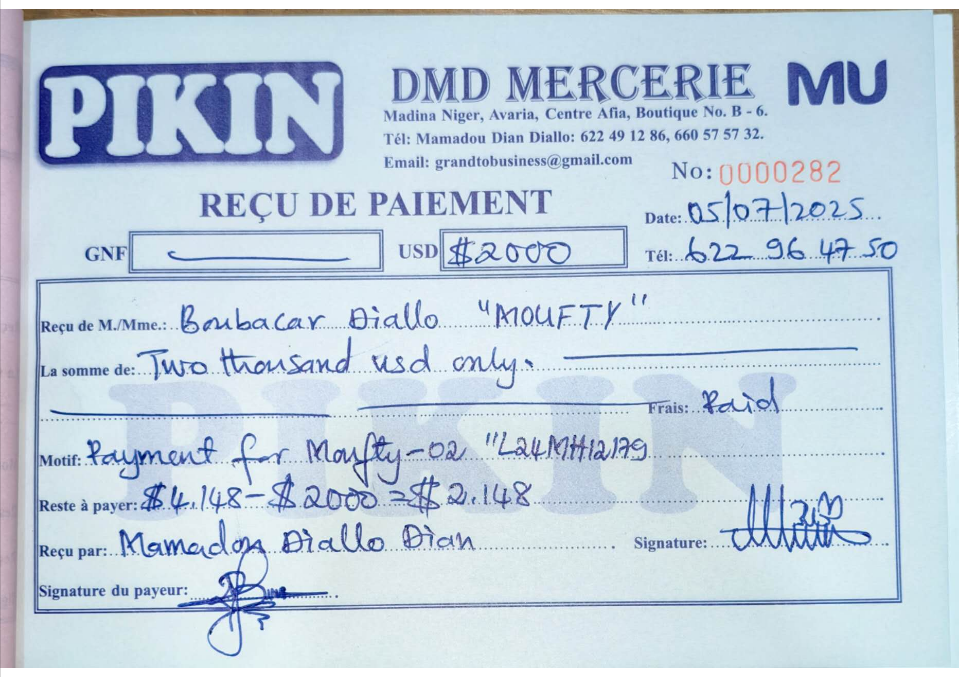 PIKIN
DMD MERCERIE MU
Madina Niger, Avaria, Centre Afia, Boutique No. B - 6.
Tél: Mamadou Dian Diallo: 622 49 12 86, 660 57 57 32.
Email: grandtobusiness@gmail.com
No: 0000282
REÇU DE PAIEMENT
Date: 05/07/2025
GNF USD $2000 Tél: 622 96 47 50
Reçu de M./Mme.: Boubacar Diallo "MOUFTY"
La somme de: Two thousand usd only.
Frais: Paid
Motif: Payment for Moufty-02 "L24MH12179
Reste à payer: $4.148-$2000=$2.148
Reçu par: Mamadou Diallo Dian Signature:
Signature du payeur:
PIKIN